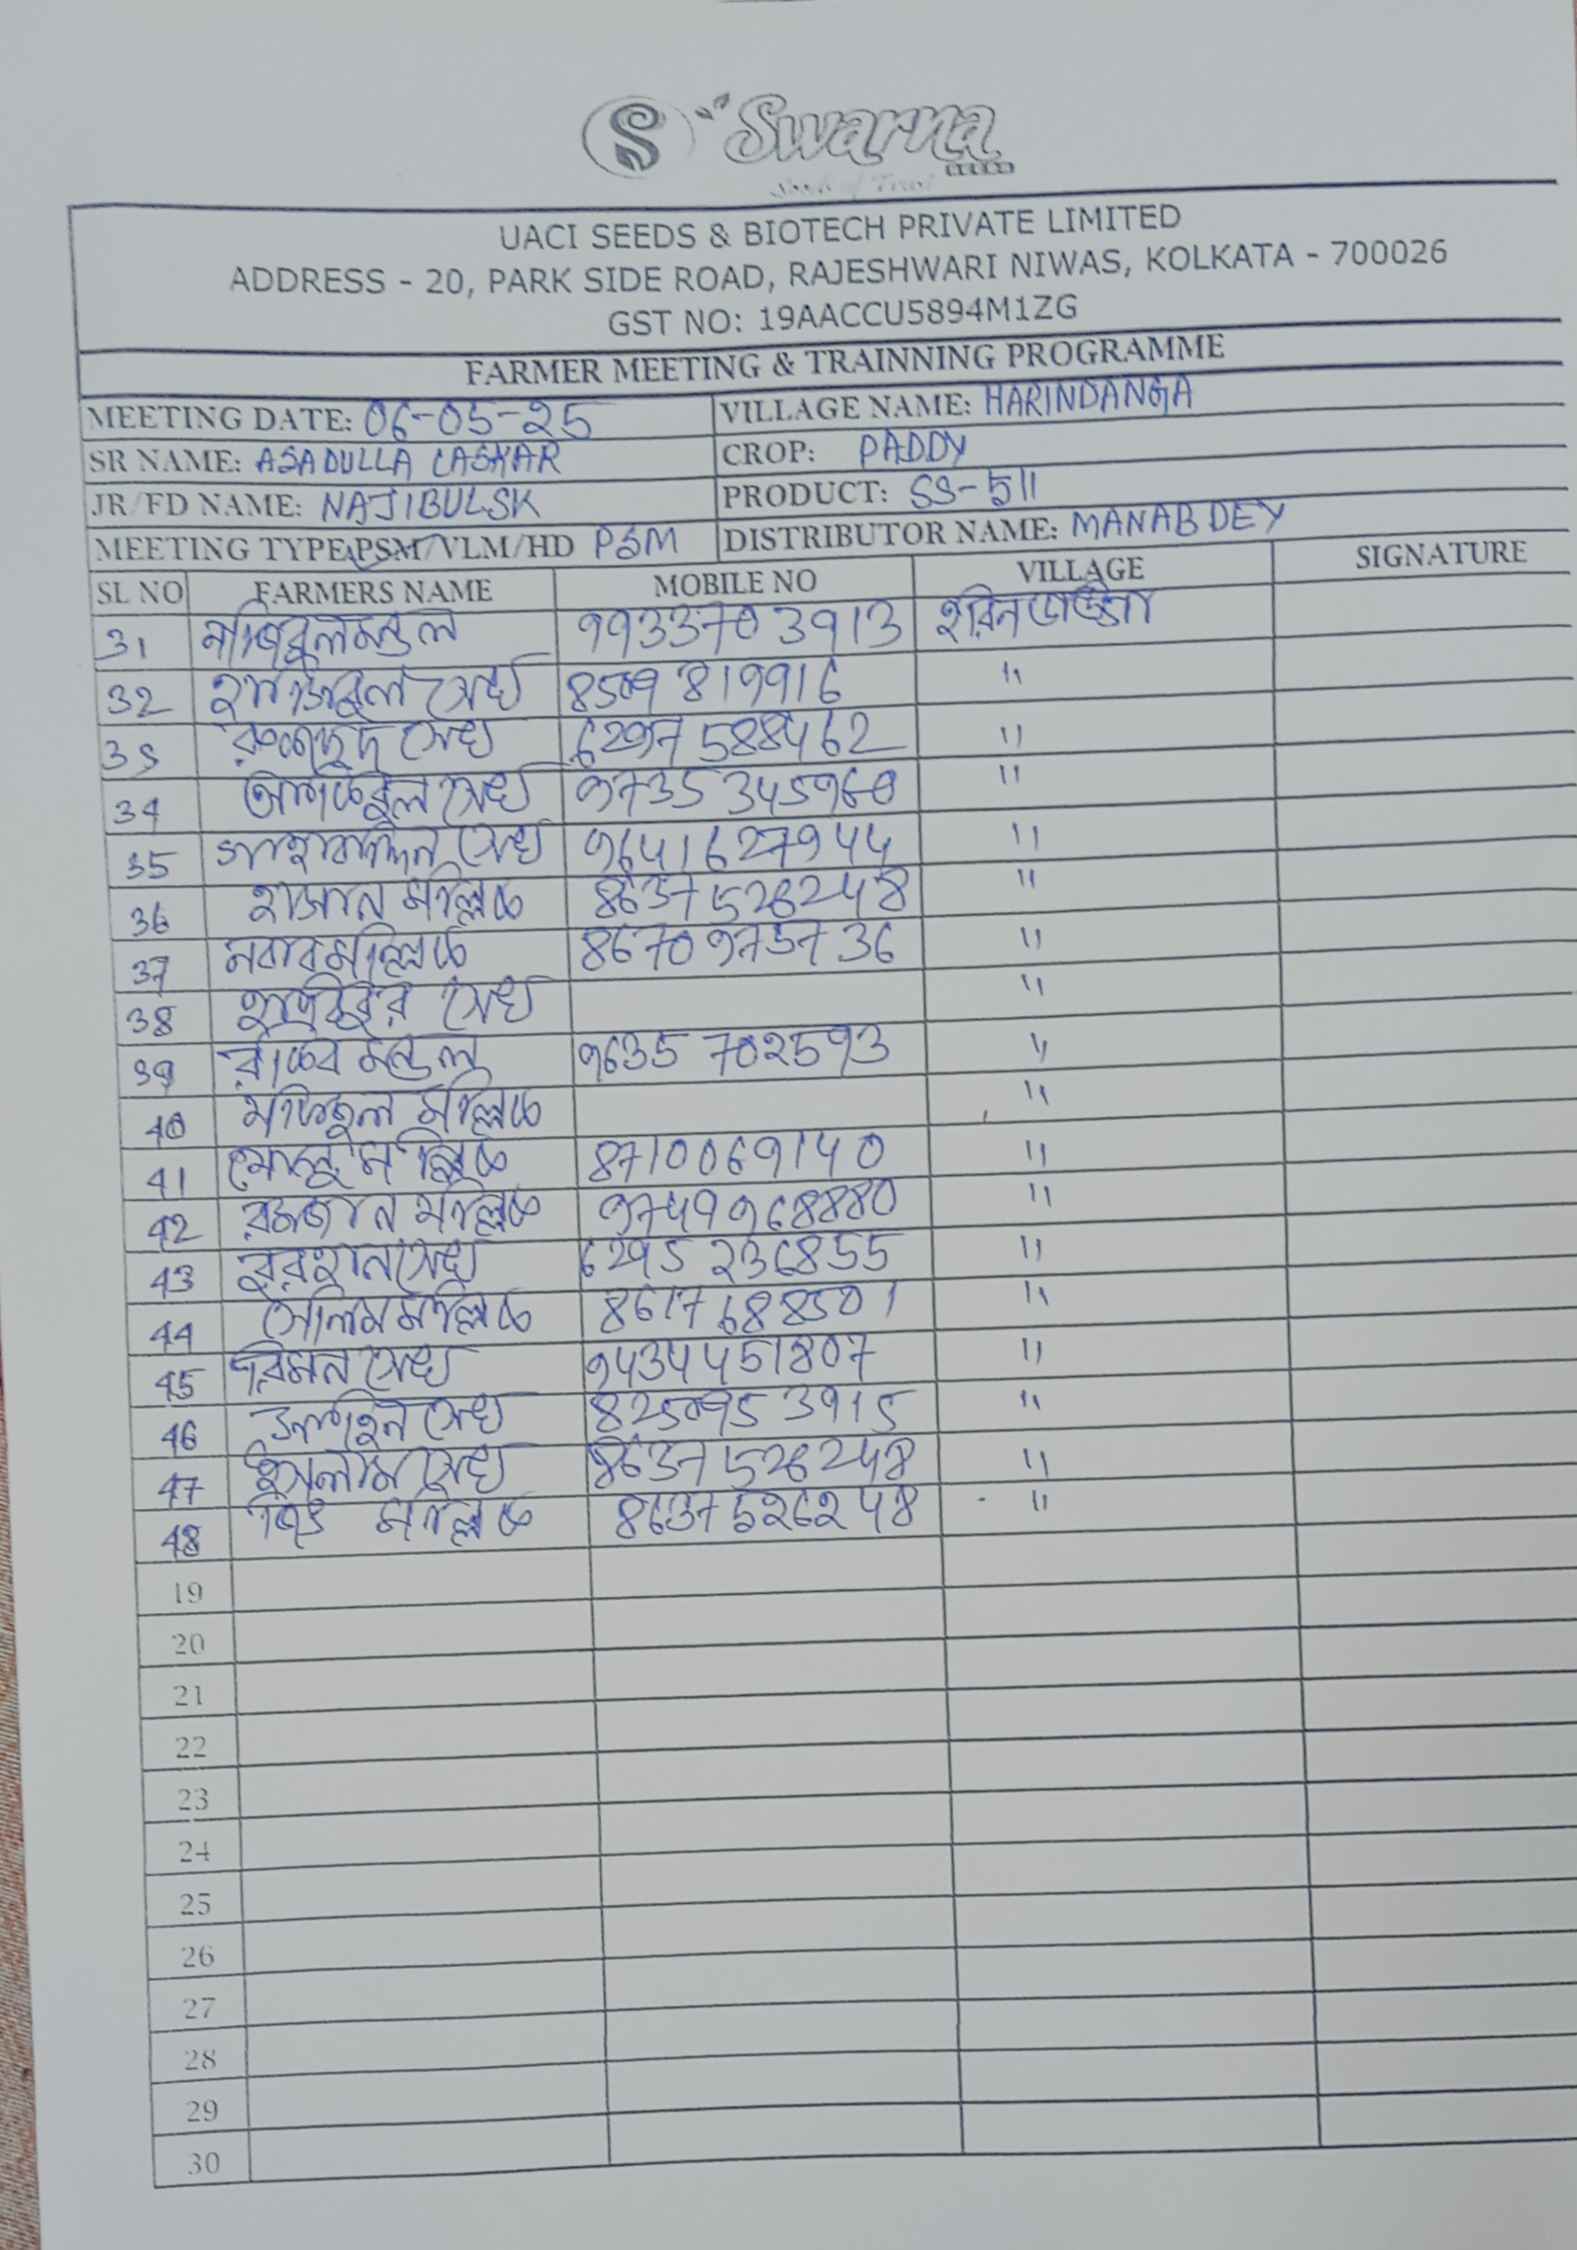 S Swarna
SEEDS
Seeds of Trust
UACI SEEDS & BIOTECH PRIVATE LIMITED
ADDRESS - 20, PARK SIDE ROAD, RAJESHWARI NIWAS, KOLKATA - 700026
GST NO: 19AACCU5894M1ZG
FARMER MEETING & TRAINNING PROGRAMME
MEETING DATE: 06-05-25 VILLAGE NAME: HARINDANGA
SR NAME: ASADULLA LASKAR CROP: PADDY
JR/FD NAME: NAJIBUL SK PRODUCT: SS-511
MEETING TYPE: PSM/VLM/HD PSM DISTRIBUTOR NAME: MANAB DEY
SL NO FARMERS NAME MOBILE NO VILLAGE SIGNATURE
31 মন্ডল 9933703913
32 সেখ 8509819916 "
33 সেখ 6297588462 "
34 সেখ 9735345960 "
35 সেখ 9641627944 "
36 হাসান মল্লিক 8637526248 "
37 নবাব মল্লিক 8670975736 "
38 সেখ "
39 রাকিব মন্ডল 9635702593 "
40 মফিজুল মল্লিক "
41 মল্লিক 8710069140 "
42 রমজান মল্লিক 9749968880 "
43 সেখ 6295236855 "
44 সেলিম মল্লিক 8617688501 "
45 সেখ 9434451807 "
46 সেখ 8250953915 "
47 ইসলাম সেখ 8637526248 "
48 মল্লিক 8637526248 "
19
20
21
22
23
24
25
26
27
28
29
30